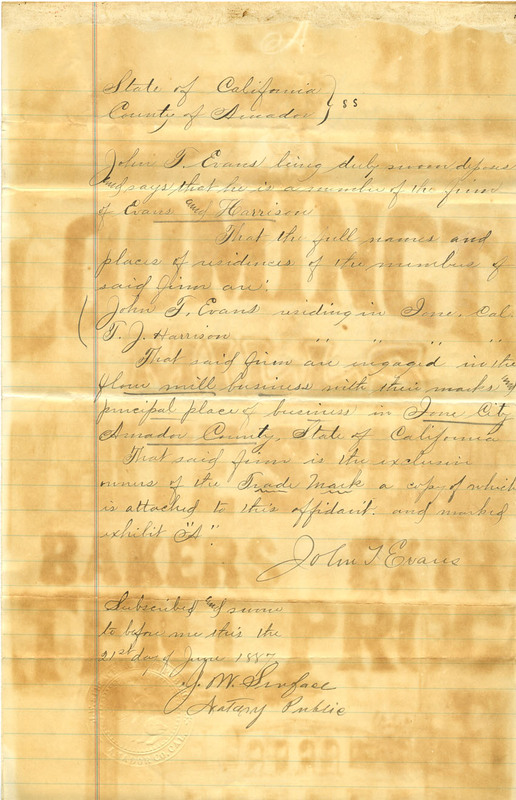 State of California } ss
County of Amador
John T. Evans being duly sworn deposes
and says that he is a member of the firm
of Evans and Harrison
That the full names and
places of residences of the members of
said firm are:
John T. Evans residing in Ione, Cal.
T. J. Harrison " " " "
That said firm are engaged in the
flour mill business with their marks and
principal place of business in Ione City
Amador County, State of California
That said firm is the exclusive
owners of the Trade Mark a copy of which
is attached to this affidavit. and marked
exhibit "A"
John T Evans
Subscribed and sworn
to before me this the
21st day of June 1887
J. W. Surface
Notary Public
BAKERS